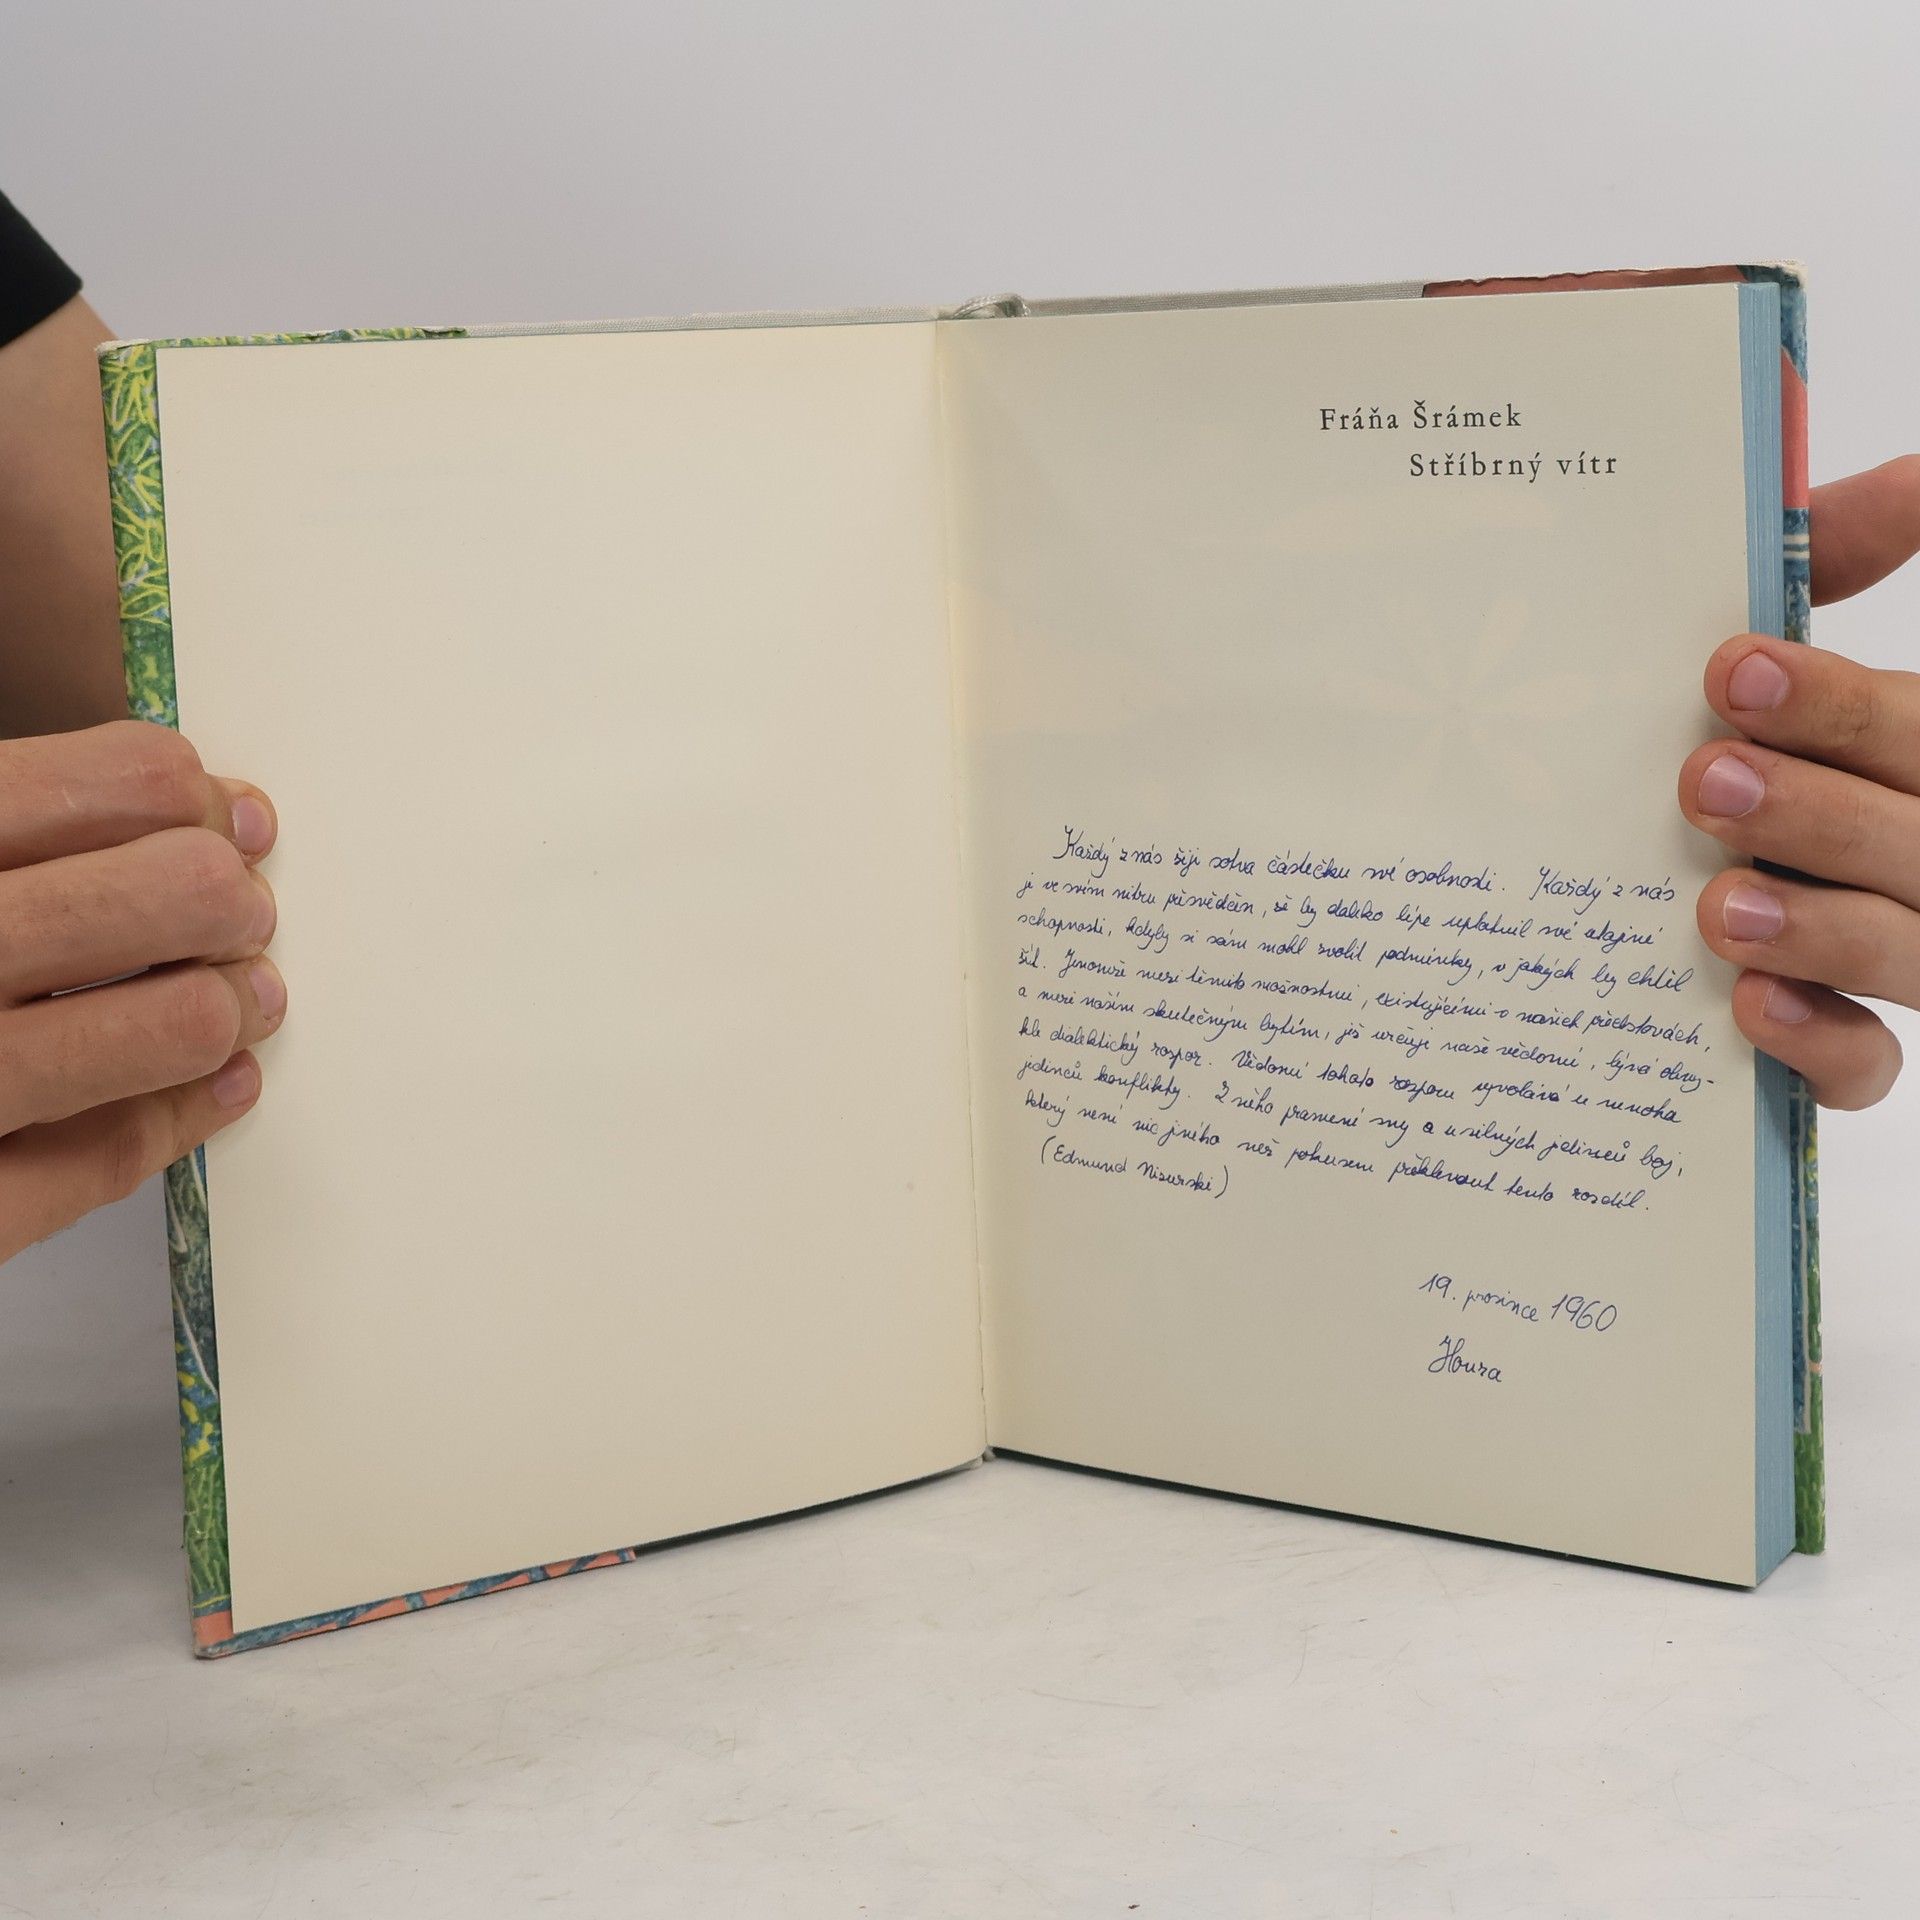 Fráňa Šrámek
Stříbrný vítr
Každý z nás žije sotva částečku své osobnosti. Každý z nás
je ve svém nitru přesvědčen, že by daleko lépe uplatnil své utajené
schopnosti, kdyby si sám mohl zvolit podmínky, v jakých by chtěl
žít. Jenomže mezi těmito možnostmi, existujícími v našich představách,
a mezi naším skutečným bytím, jež určuje naše vědomí, bývá obvy-
kle dialektický rozpor. Vědomí tohoto rozporu vyvolává u mnoha
jedinců konflikty. Z něho pramení sny a u silných jedinců boj,
který není nic jiného než pokusem překlenout tento rozdíl.
(Edmund Niziurski)
19. prosince 1960
Honza